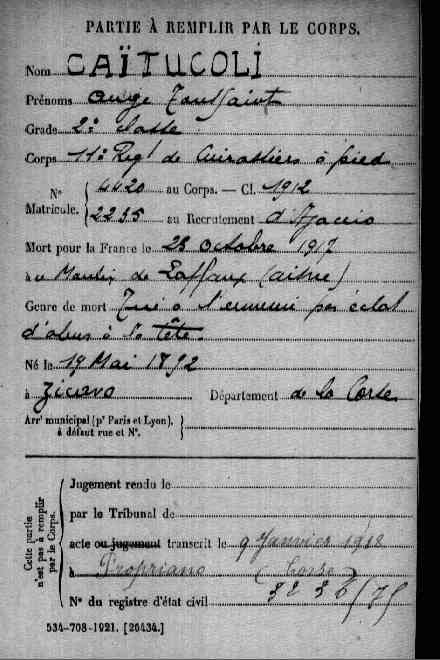 PARTIE À REMPLIR PAR LE CORPS.
Nom CAÏTUCOLI
Prénoms Ange Toussaint
Grade 2e classe
Corps 11e Regt de Cuirassiers à pied
No Matricule. { 4420 au Corps. — Cl. 1912
2255 au Recrutement d'Ajaccio
Mort pour la France le 23 octobre 1917
à au Moulin de Laffaux (aisne)
Genre de mort Tué à l'ennemi par éclat
d'obus à la tête.
Né le 19 Mai 1892
à Zicavo Département de la Corse
Arrt municipal (pr Paris et Lyon), à défaut rue et No. }
Cette partie n'est pas à remplir par le Corps. {
Jugement rendu le
par le Tribunal de
acte ou jugement transcrit le 9 Janvier 1918
à Propriano (Corse)
No du registre d'état civil
534-708-1921. [26434.]